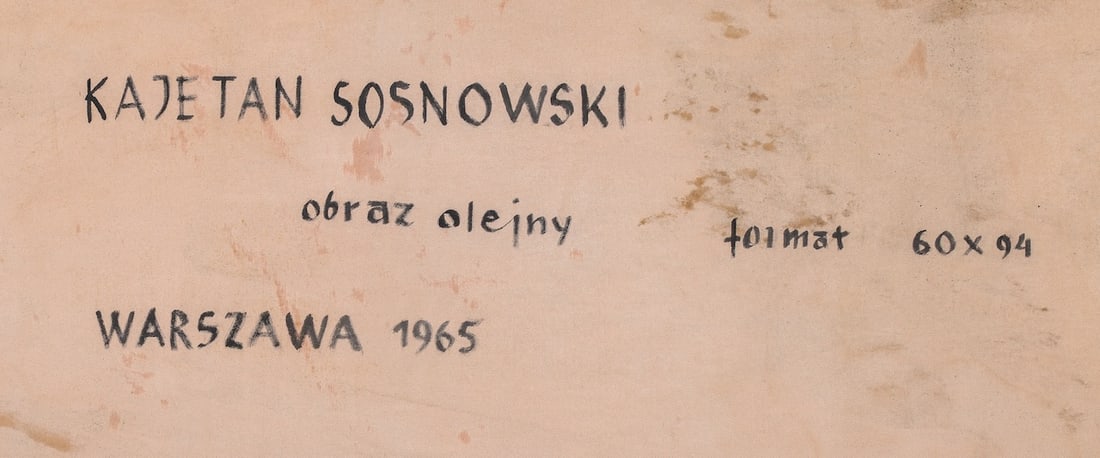 KAJETAN SOSNOWSKI
obraz olejny format 60 x 94
WARSZAWA 1965